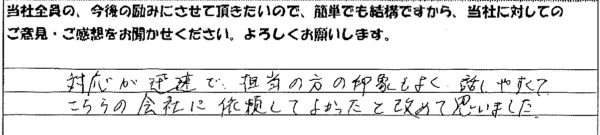 当社全員の、今後の励みにさせて頂きたいので、簡単でも結構ですから、当社に対しての
ご意見・ご感想をお聞かせください。よろしくお願いします。
対応が迅速で、担当の方の印象もよく、話しやすくて
こちらの会社に依頼してよかったと改めて思いました。